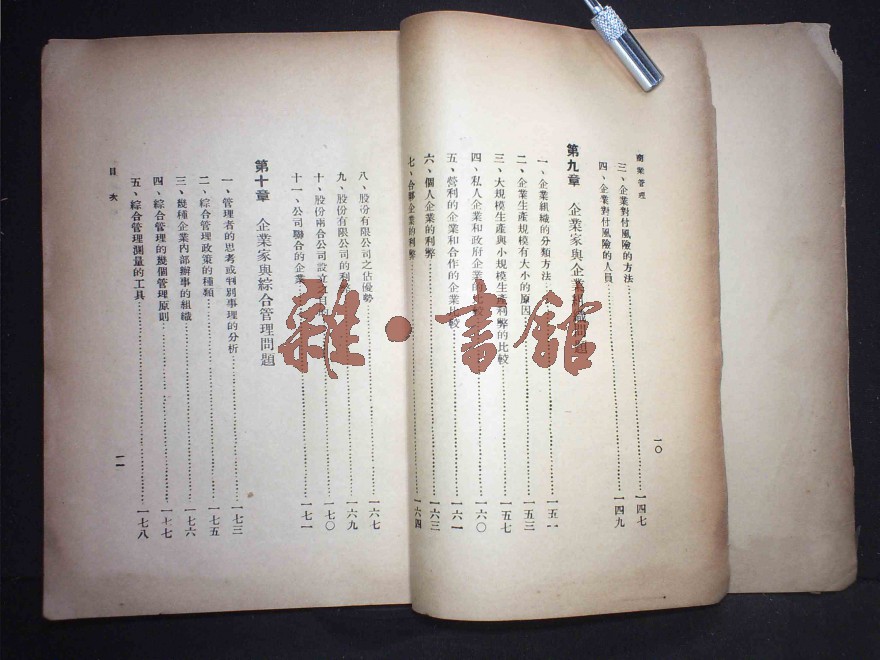 商業管理
三、企業對付風險的方法……一四七
四、企業對付風險的人員……一四九
第九章　企業家與企業組織問題
一、企業組織的分類方法……一五一
二、企業生產規模有大小的原因……一五三
三、大規模生產與小規模生產利弊的比較……一五七
四、私人企業和政府企業的比較……一六〇
五、營利的企業和合作的企業比較……一六一
六、個人企業的利弊……一六三
七、合夥企業的利弊……一六四
一〇
八、股份有限公司之佔優勢……一六七
九、股份有限公司的利……一六九
十、股份兩合公司設立之……一七〇
十一、公司聯合的企業……一七一
第十章　企業家與綜合管理問題
一、管理者的思考或判別事理的分析……一七三
二、綜合管理政策的種類……一七五
三、幾種企業內部辦事的組織……一七六
四、綜合管理的幾個管理原則……一七七
五、綜合管理測量的工具……一七八
目次
一一
雜·書館